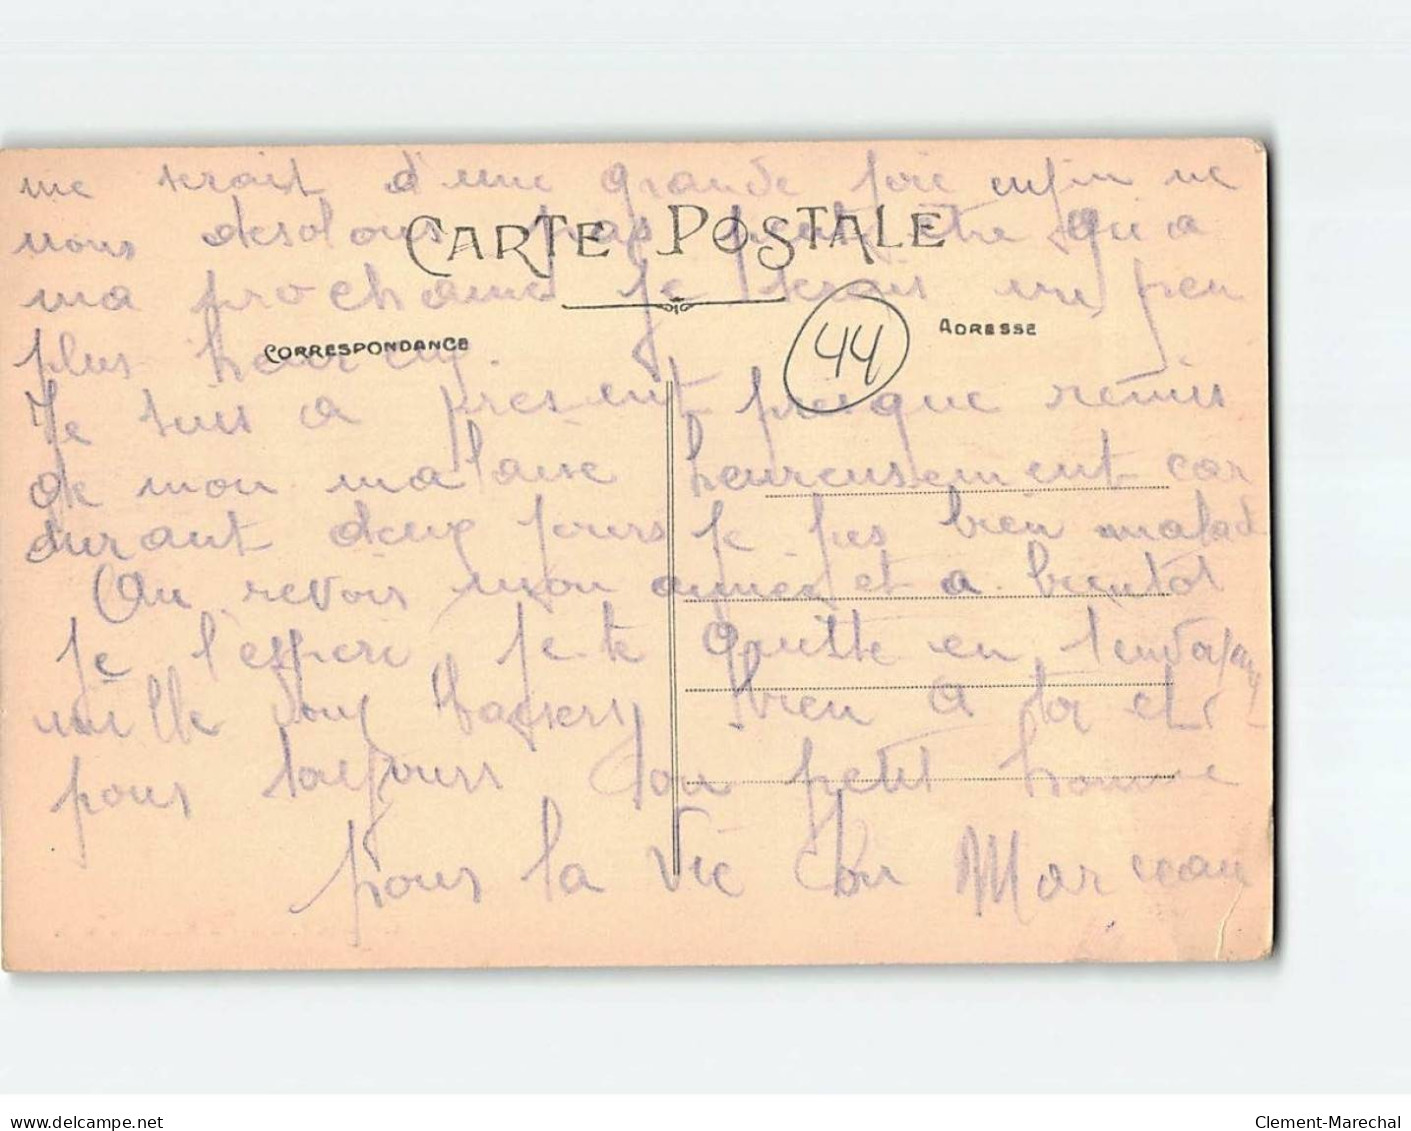 me serait d'une grande joie enfin ne
nous desolons pas peut etre qu'a
CARTE POSTALE
ma prochaine je serais un peu
44
CORRESPONDANCE
ADRESSE
plus heureux.
Je suis a present presque remis
de mon malaise heureusement car
durant deux jours je fus bien malade
Au revoir mon aimée et a bientot
je l'espere, je te quitte en t'envoyant
mille doux baisers bien a toi et
pour toujours ton petit homme
pour la vie ton Marceau
www.delcampe.net
Clement-Marechal